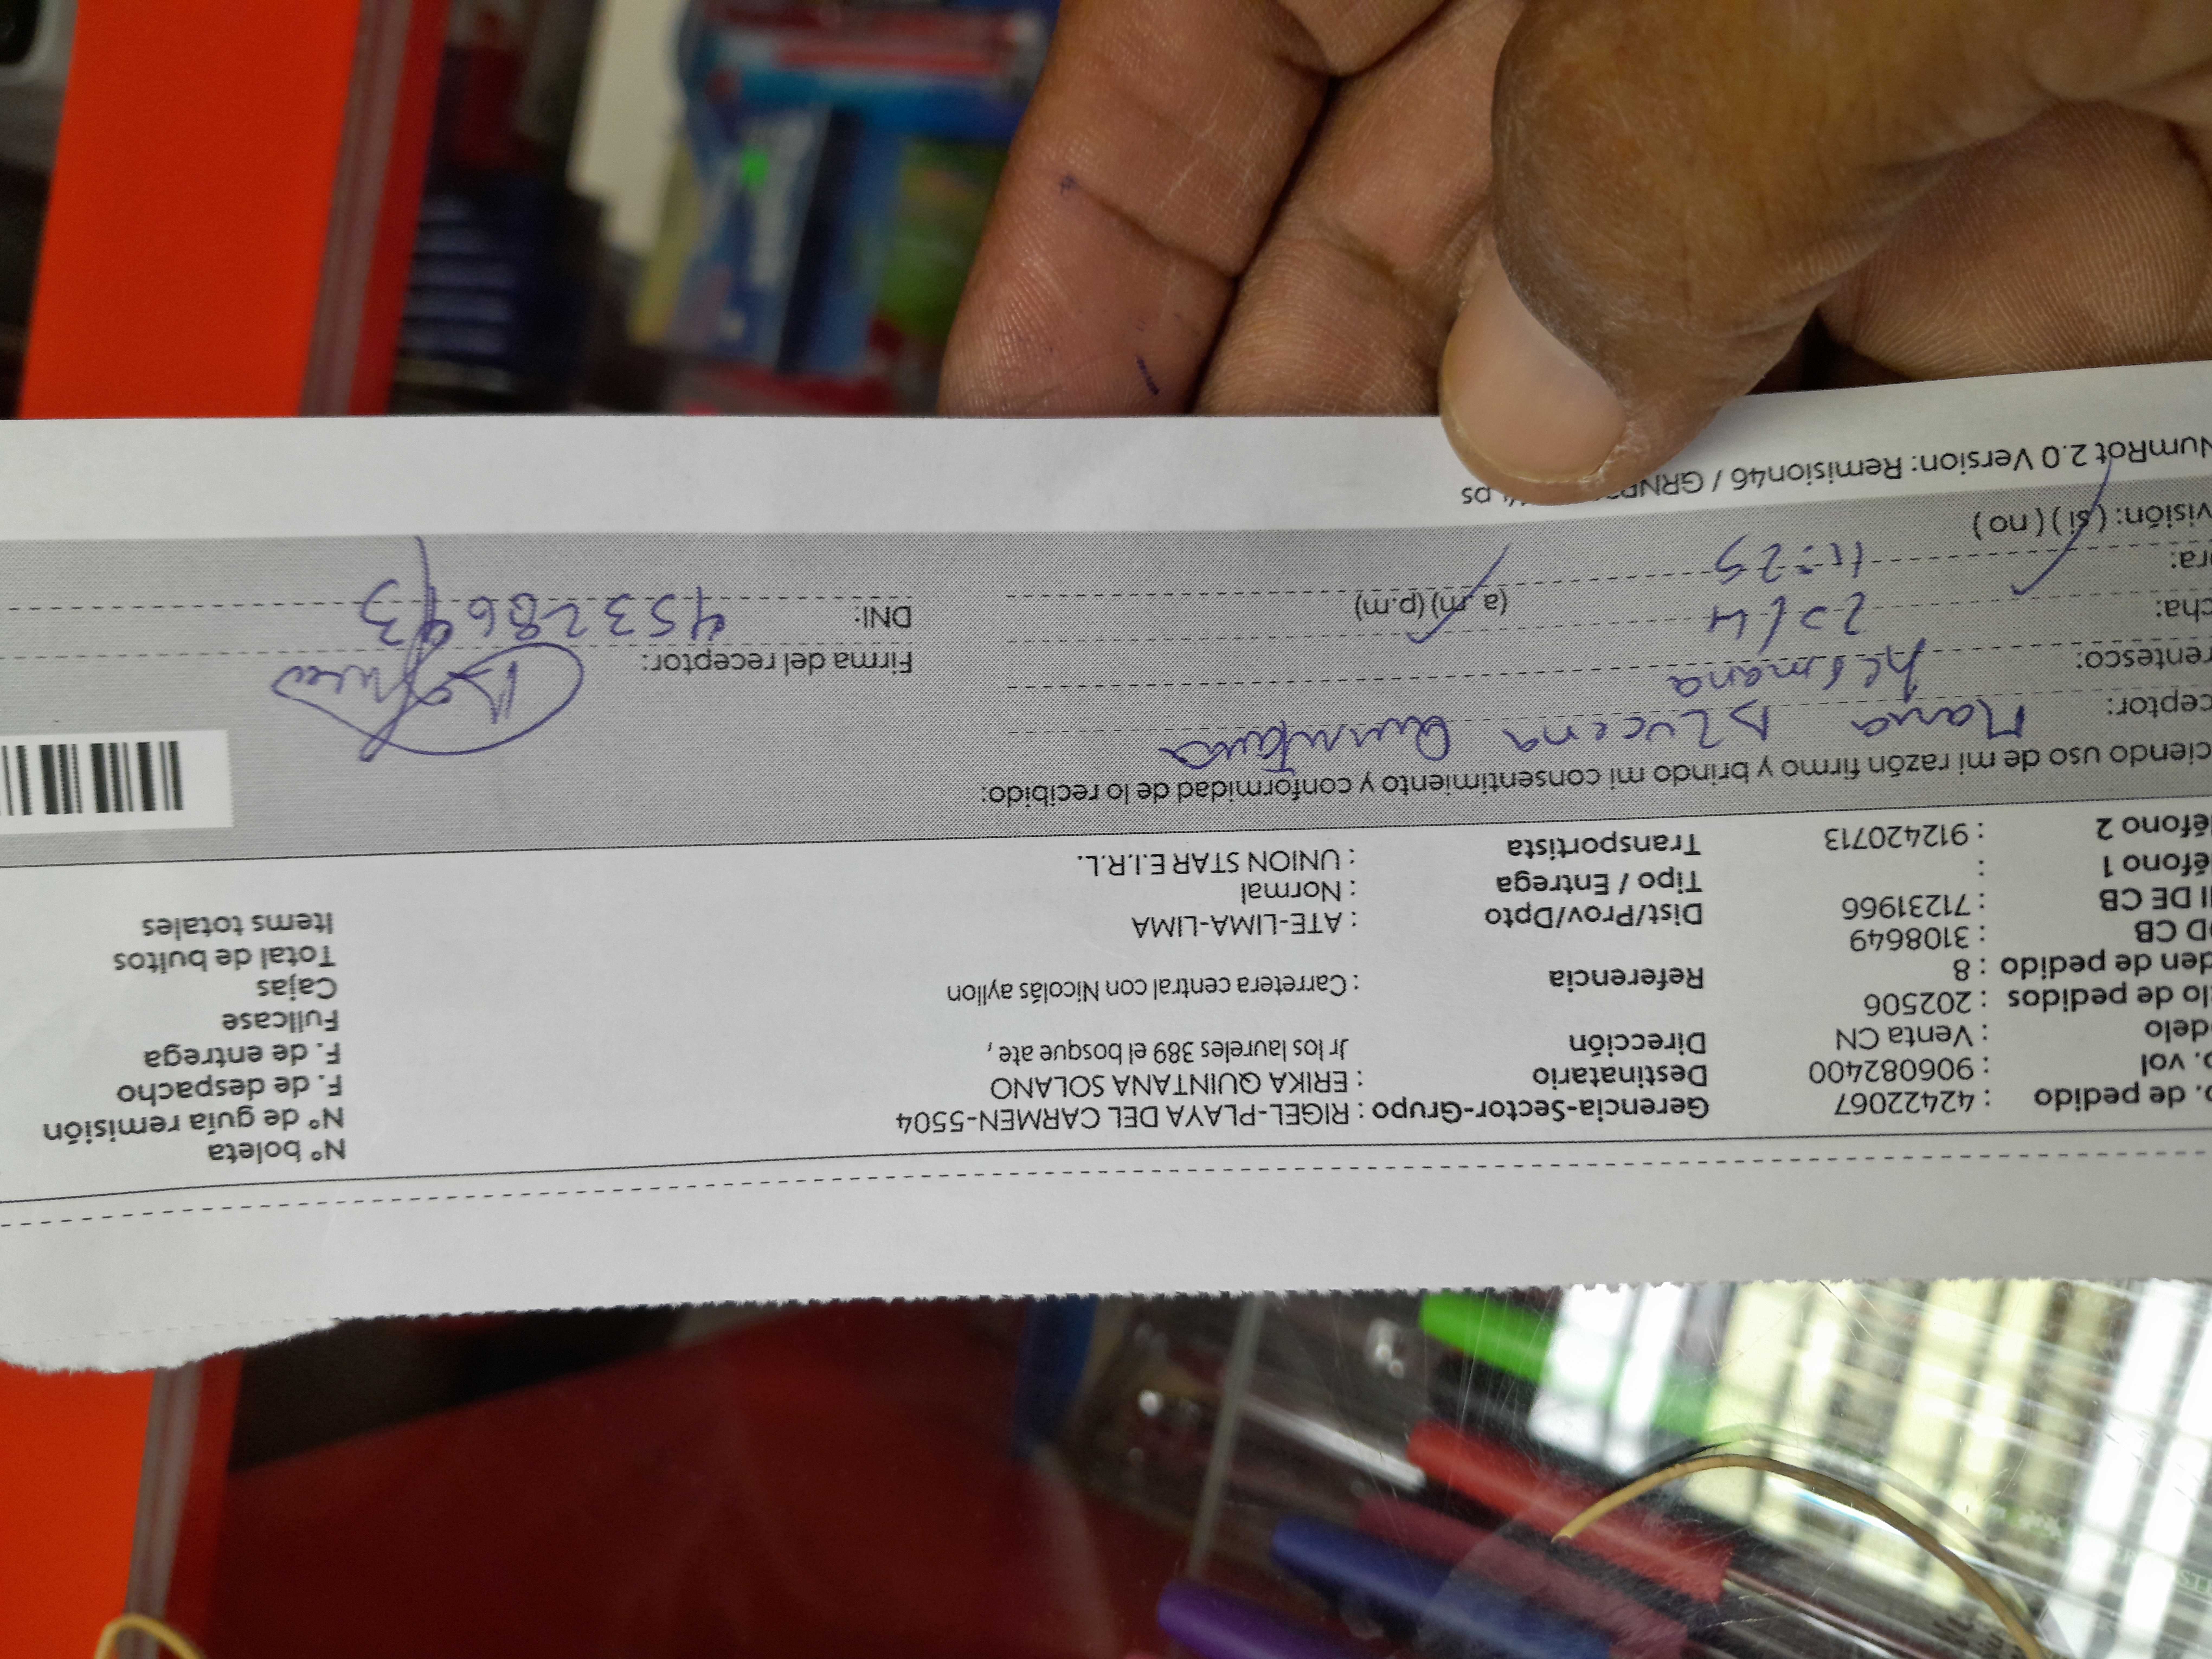 Nº boleta
o. de pedido : 42422067 Gerencia-Sector-Grupo : RIGEL-PLAYA DEL CARMEN-5504 Nº de guía remisión
o. vol : 906082400 Destinatario : ERIKA QUINTANA SOLANO F. de despacho
delo : Venta CN Dirección Jr los laureles 389 el bosque ate , F. de entrega
lo de pedidos : 202506 Fullcase
den de pedido : 8 Referencia : Carretera central con Nicolás ayllon Cajas
OD CB : 3108649 Total de bultos
II DE CB : 71231966 Dist/Prov/Dpto : ATE-LIMA-LIMA Items totales
léfono 1 : Tipo / Entrega : Normal
léfono 2 : 912420713 Transportista : UNION STAR E.I.R.L.
ciendo uso de mi razón firmo y brindo mi consentimiento y conformidad de lo recibido:
ceptor: Maria Azucena Quintana
rentesco: hermana Firma del receptor:
cha: 22/4 DNI: 45328693
ora: 11:29 (a.m) (p.m)
visión: ( si ) ( no )
NumRot 2.0 Version: Remision46 / GRNP ps